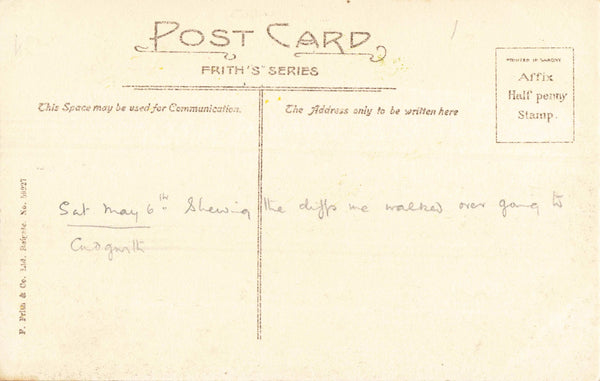 POST CARD
FRITH'S SERIES
This Space may be used for Communication.
The Address only to be written here
PRINTED IN SAXONY
Affix
Half penny
Stamp.
Sat May 6th Shewing the cliffs we walked over going to
Cadgwith
F. Frith & Co. Ltd. Reigate. No.